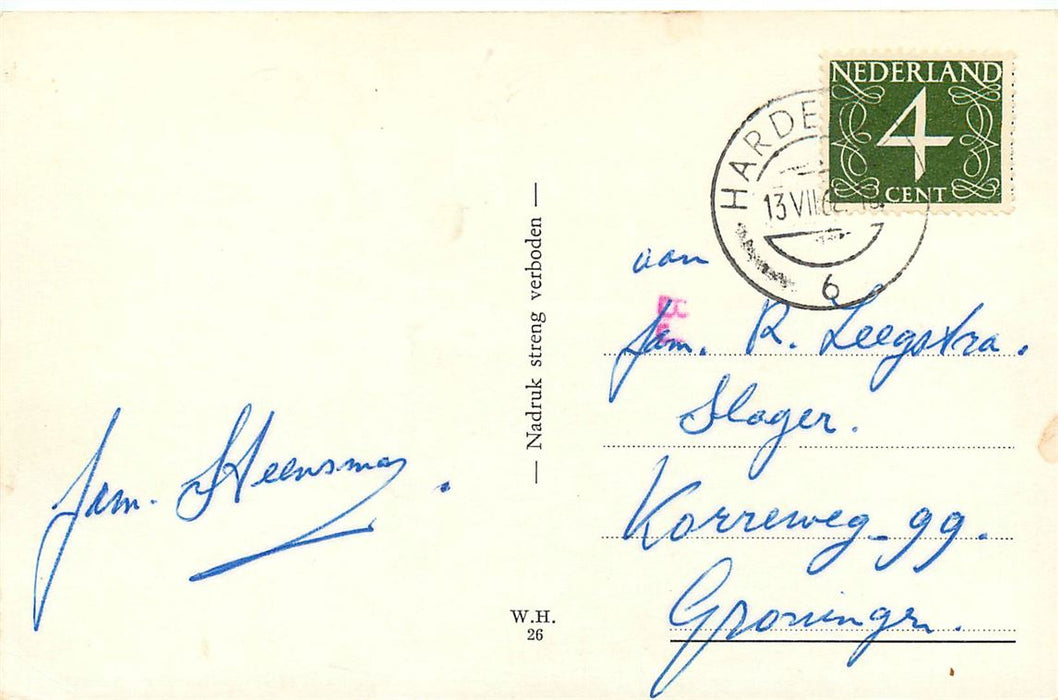 NEDERLAND
4
CENT
HARDE
13 VII
6
aan
Fam. R. Leegstra.
Slager.
Korreweg - 99.
Groningen.
Fam. Steensma
— Nadruk streng verboden —
W.H.
26